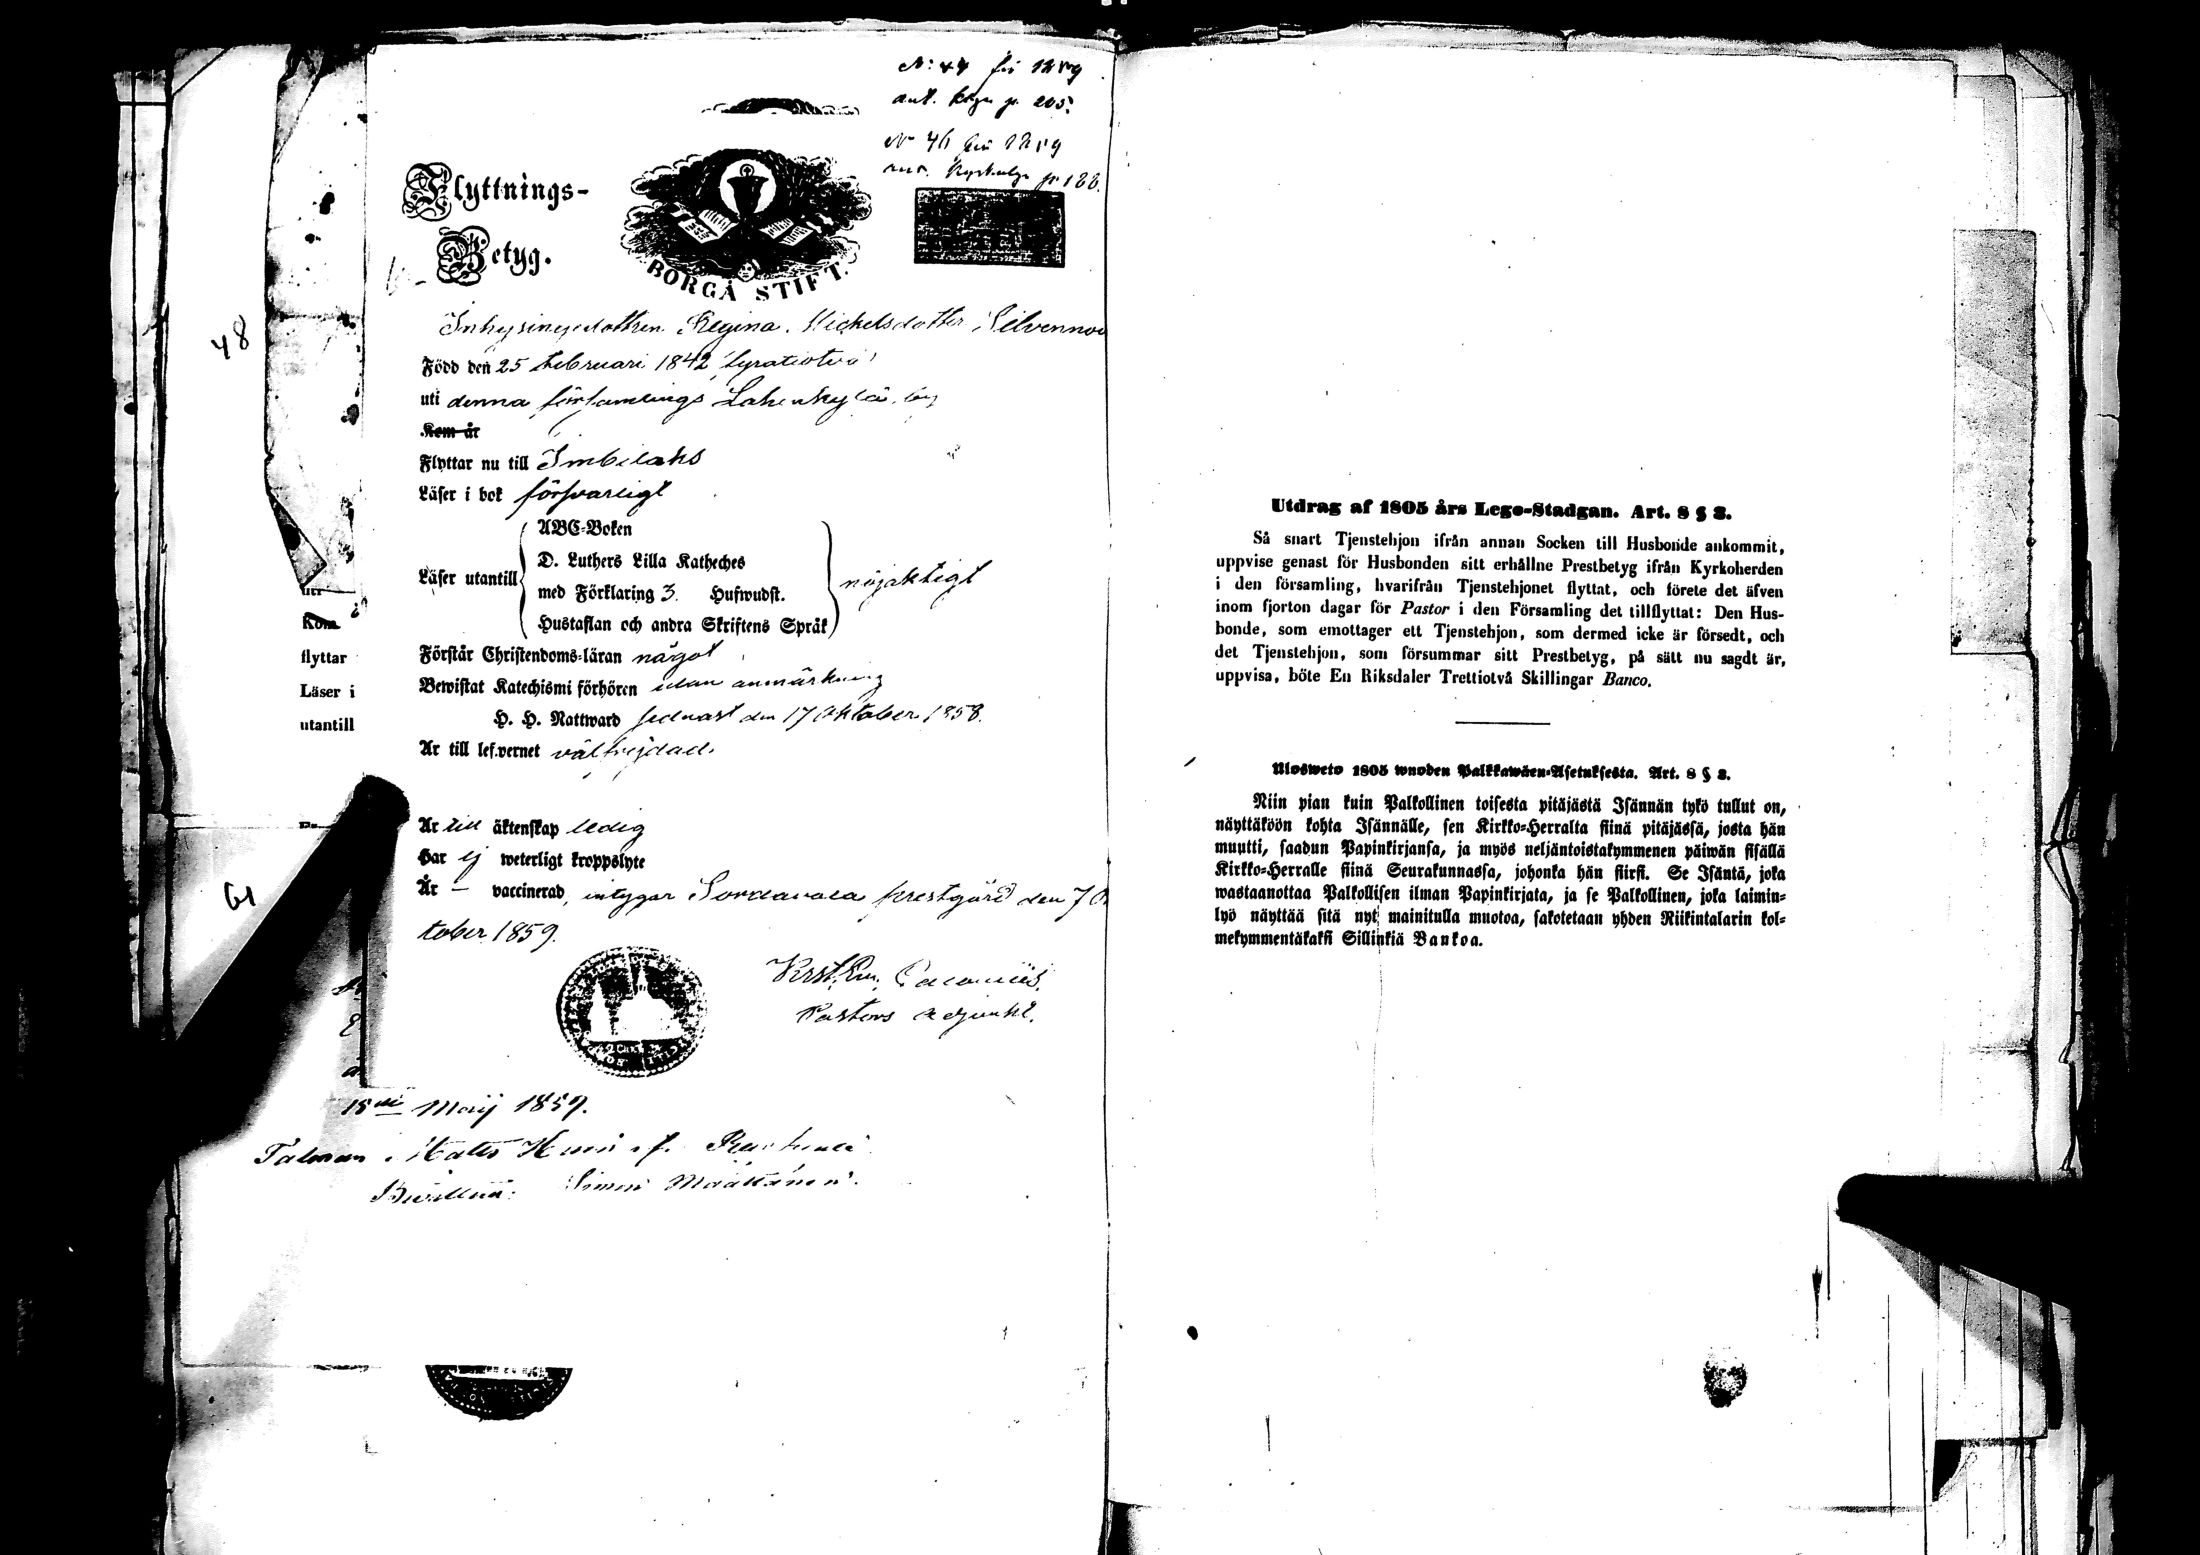 för 1859
ant. p. 205.
N 46 för 1859
p. 188.
Flyttnings-
Betyg.
BORGÅ STIFT.
48
Inhysingedottren Regina Michelsdotter Silvennoi
Född den 25 februari 1842 fyratiotvå
uti denna församlings Lahenkylä by
Kom år
Flyttar nu till Imbilaks
Läser i bok försvarligt
ABC-Boken
D. Luthers Lilla Katheches
Läser utantill
med Förklaring 3. Hufwudst.
nöjaktigt
Hustaflan och andra Skriftens Språk
Förstår Christendoms-läran något
Bewistat Katechismi förhören utan anmärkning
H. H. Nattward sednast den 17 Oktober 1858.
Är till lefvernet välfrejdad.
Är till äktenskap ledig
Har ej weterligt kroppslyte
Är — vaccinerad, intygar Sordavala prestgård den 7 O
tober 1859.
Pastors adjunkt.
utt
Kom
flyttar
Läser i
utantill
61
15 Maij 1859.
Matts
Simon Määttänen.
Utdrag af 1805 års Lego-Stadgan. Art. 8 § 8.
Så snart Tjenstehjon ifrån annan Socken till Husbonde ankommit,
uppvise genast för Husbonden sitt erhållne Prestbetyg ifrån Kyrkoherden
i den församling, hvarifrån Tjenstehjonet flyttat, och förete det äfven
inom fjorton dagar för Pastor i den Församling det tillflyttat: Den Hus-
bonde, som emottager ett Tjenstehjon, som dermed icke är försedt, och
det Tjenstehjon, som försummar sitt Prestbetyg, på sätt nu sagdt är,
uppvisa, böte En Riksdaler Trettiotvå Skillingar Banco.
Ulosweto 1805 wuoden Palkkawäen-Asetuksesta. Art. 8 § 8.
Niin pian kuin Palkollinen toisesta pitäjästä Isännän tykö tullut on,
näyttäköön kohta Isännälle, sen Kirkko-Herralta siinä pitäjässä, josta hän
muutti, saadun Papinkirjansa, ja myös neljäntoistakymmenen päiwän sisällä
Kirkko-Herralle siinä Seurakunnassa, johonka hän siirsi. Se Isäntä, joka
wastaanottaa Palkollisen ilman Papinkirjata, ja se Palkollinen, joka laimin-
lyö näyttää sitä nyt mainitulla muotoa, sakotetaan yhden Riikintalarin kol-
mekymmentäkaksi Sillinkiä Bankoa.